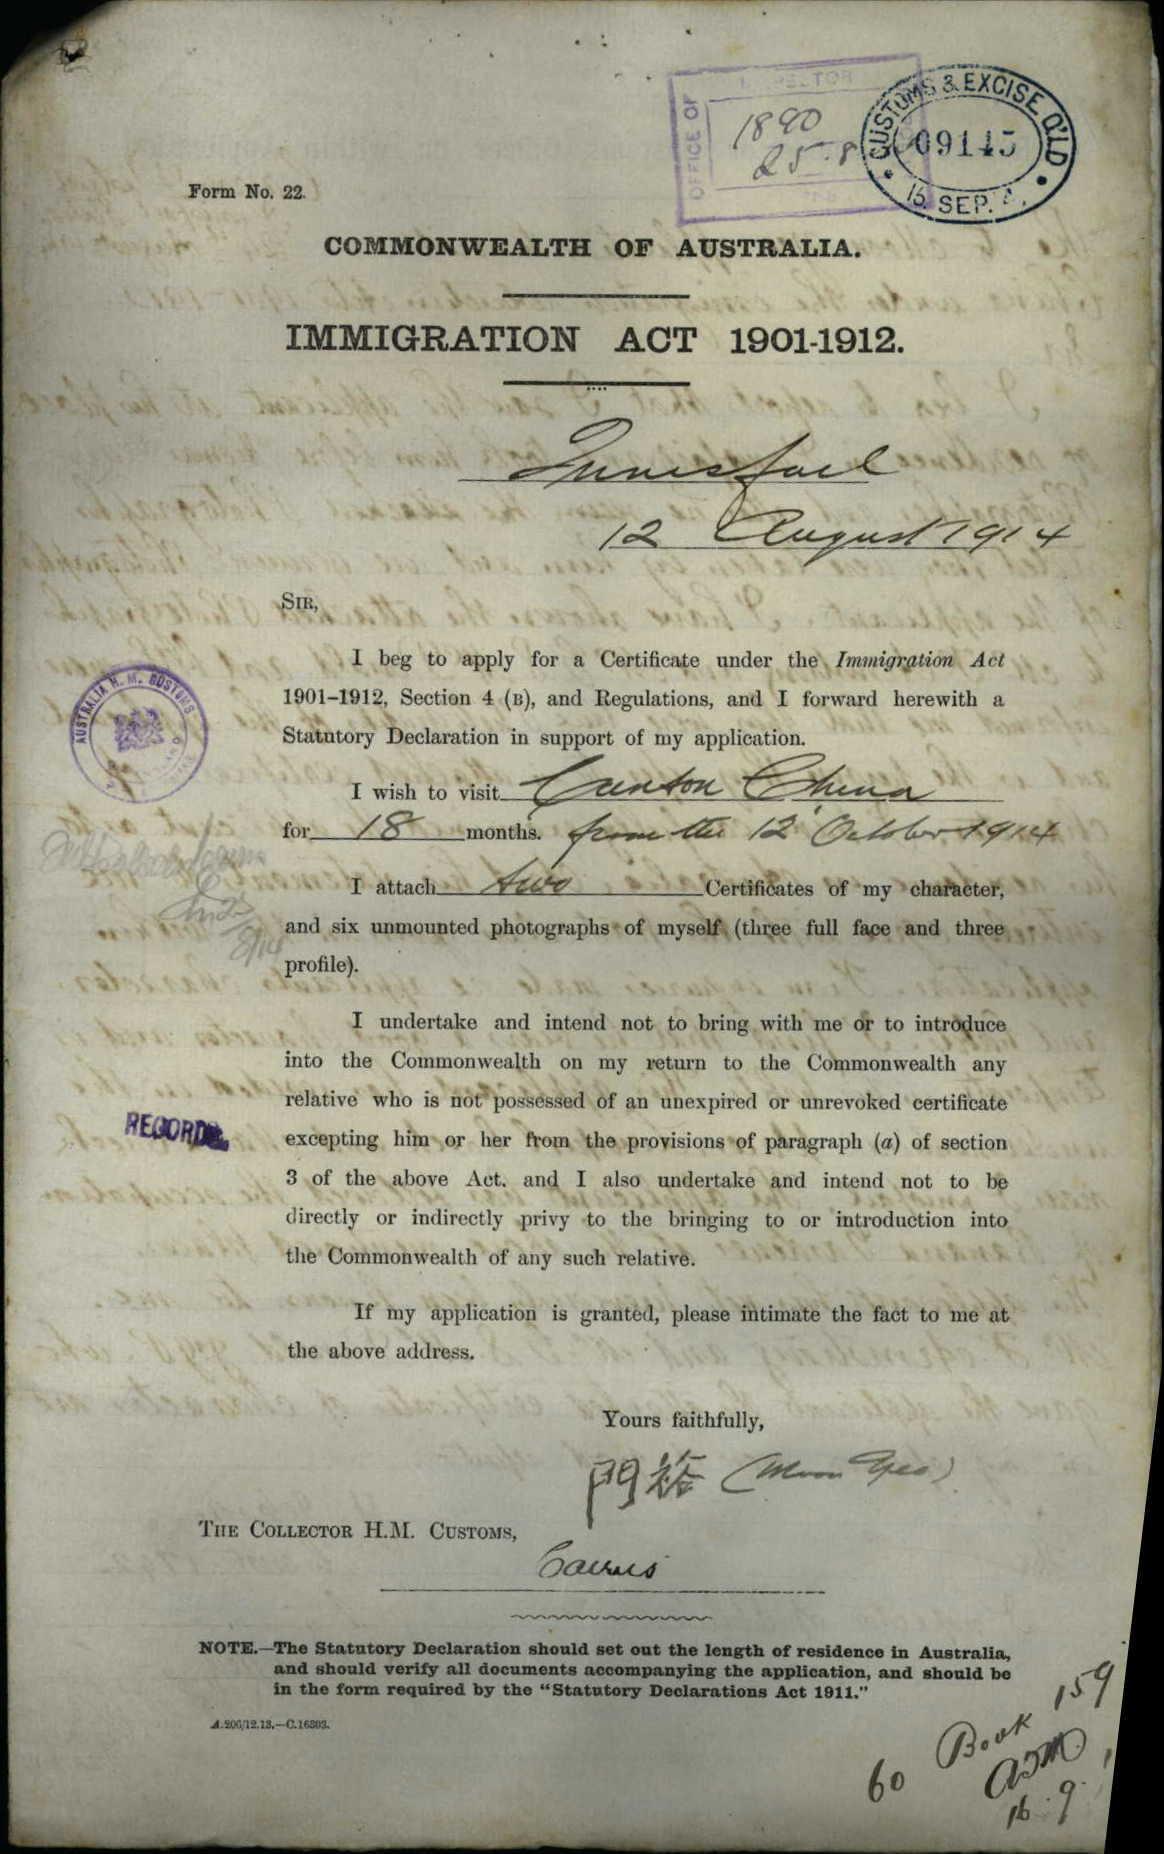 OFFICE OF
INSPECTOR
1890
25.8
CUSTOMS & EXCISE Q'LD
09145
15. SEP.
Form No. 22.
COMMONWEALTH OF AUSTRALIA.
IMMIGRATION ACT 1901-1912.
Innisfail
12 August 1914
SIR,
I beg to apply for a Certificate under the Immigration Act
1901-1912, Section 4 (B), and Regulations, and I forward herewith a
Statutory Declaration in support of my application.
AUSTRALIA H. M. CUSTOMS
I wish to visit Canton China
for 18 months. from the 12 October 1914
I attach two Certificates of my character,
and six unmounted photographs of myself (three full face and three
profile).
I undertake and intend not to bring with me or to introduce
into the Commonwealth on my return to the Commonwealth any
relative who is not possessed of an unexpired or unrevoked certificate
RECORDS
excepting him or her from the provisions of paragraph (a) of section
3 of the above Act. and I also undertake and intend not to be
directly or indirectly privy to the bringing to or introduction into
the Commonwealth of any such relative.
If my application is granted, please intimate the fact to me at
the above address.
Yours faithfully,
門裕 (Moon Yee)
THE COLLECTOR H.M. CUSTOMS,
Cairns
NOTE.—The Statutory Declaration should set out the length of residence in Australia,
and should verify all documents accompanying the application, and should be
in the form required by the "Statutory Declarations Act 1911."
A.206/12.13.—C.16303.
60 Book 159
16.9.